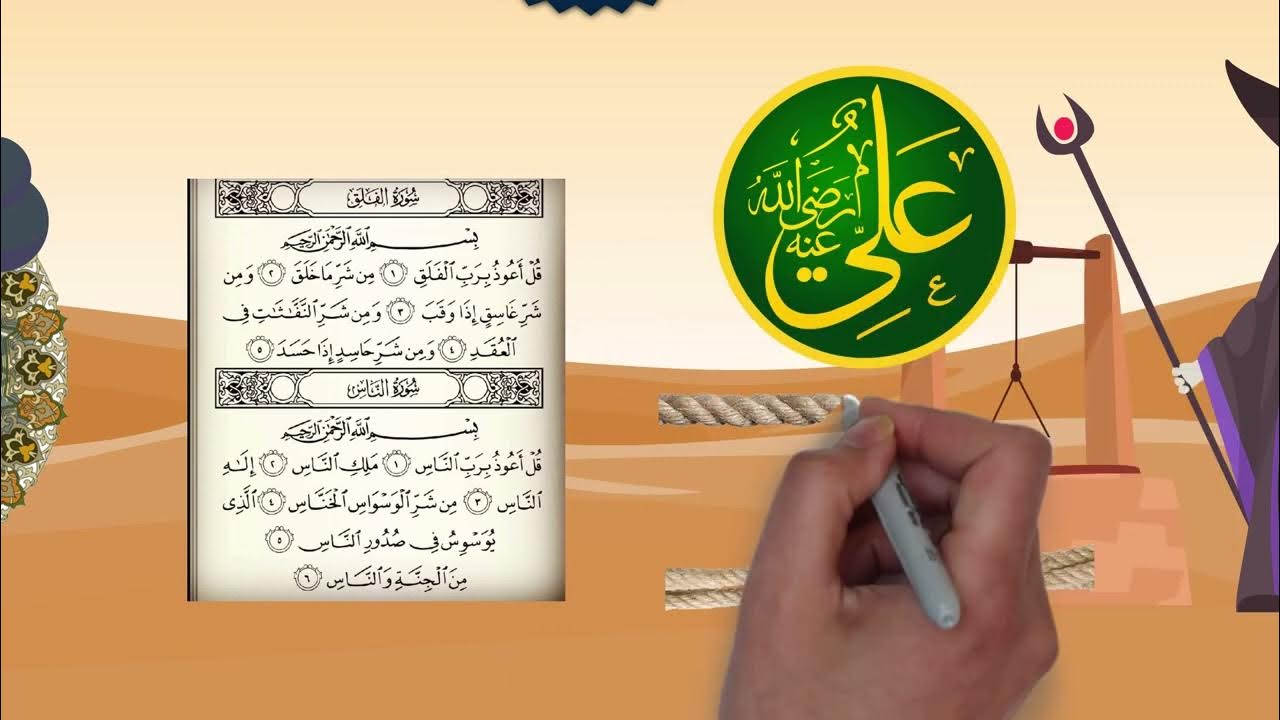 سُورَةُ الفَلَقِ
بِسْمِ ٱللَّهِ ٱلرَّحْمَٰنِ ٱلرَّحِيمِ
قُلْ أَعُوذُ بِرَبِّ ٱلْفَلَقِ ١ مِن شَرِّ مَا خَلَقَ ٢ وَمِن
شَرِّ غَاسِقٍ إِذَا وَقَبَ ٣ وَمِن شَرِّ ٱلنَّفَّٰثَٰتِ فِي
ٱلْعُقَدِ ٤ وَمِن شَرِّ حَاسِدٍ إِذَا حَسَدَ ٥
سُورَةُ النَّاسِ
بِسْمِ ٱللَّهِ ٱلرَّحْمَٰنِ ٱلرَّحِيمِ
قُلْ أَعُوذُ بِرَبِّ ٱلنَّاسِ ١ مَلِكِ ٱلنَّاسِ ٢ إِلَٰهِ
ٱلنَّاسِ ٣ مِن شَرِّ ٱلْوَسْوَاسِ ٱلْخَنَّاسِ ٤ ٱلَّذِي
يُوَسْوِسُ فِي صُدُورِ ٱلنَّاسِ ٥
مِنَ ٱلْجِنَّةِ وَٱلنَّاسِ ٦
عَلِيّ
رَضِيَ اللَّهُ
عنه